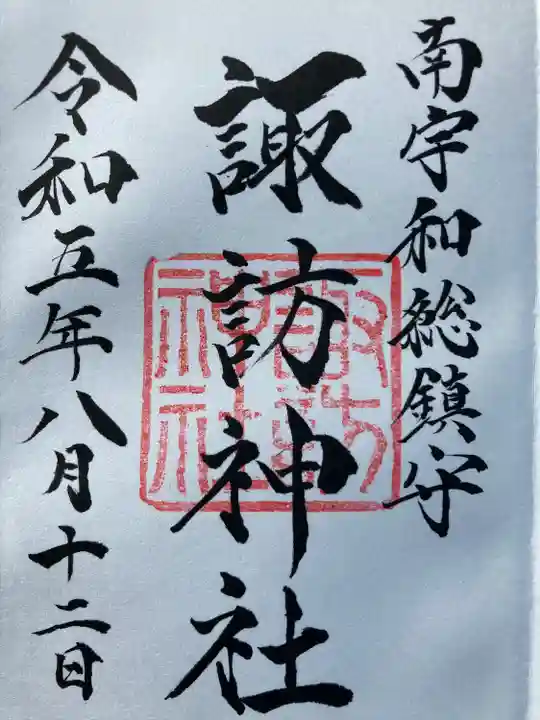 南宇和総鎮守
諏訪神社
諏訪神社
令和五年八月十二日